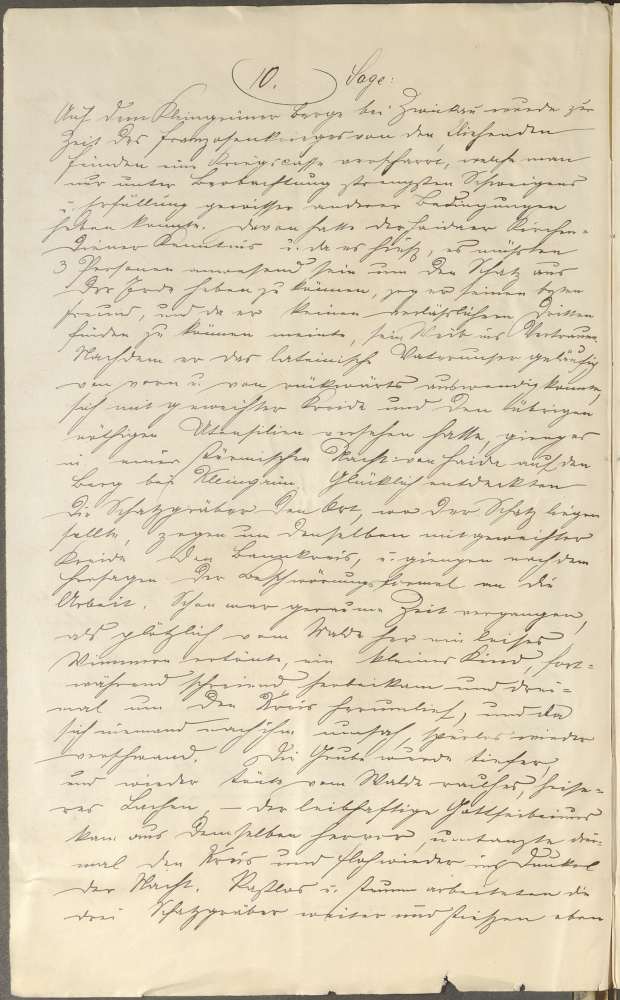 10. Sage:
Auf dem Kleingrüner Berge bei Zwickau wurde zur
Zeit des Franzosenkrieges von den fliehenden
Feinden eine Kriegscasse verscharrt, welche man
nur unter Beobachtung strengsten Schweigens
u. Erfüllung gewisser anderer Bedingungen
heben konnte. Davon hatte der Haidaer Kirchen-
diener Kenntnis u. da es hieß, es müßten
3 Personen anwesend sein um den Schatz aus
der Erde heben zu können, zog er seinen besten
Freund, und da er keinen verläßlichern Dritten
finden zu können meinte, sein Weib ins Vertrauen.
Nachdem er das lateinische Vaterunser geläufig
von vorn u. von rückwärts auswendig konnte,
sich mit geweihter Kreide und den übrigen
nöthigen Utensilien versehen hatte, gieng es
in einer stürmischen Nacht von Haida auf den
Berg bei Kleingrün. Glücklich entdeckten
die Schatzgräber den Ort, wo der Schatz liegen
sollte, zogen um denselben mit geweihter
Kreide den Bannkreis, u. giengen nach dem
Hersagen der Beschwörungsformel an die
Arbeit. Schon war geraume Zeit vergangen,
als plötzlich vom Walde her ein leises
Wimmern ertönte, ein kleines Kind, fort-
während schreiend herbeikam und drei-
mal um den Kreis herumlief, und da
sich niemand nach ihm umsah, spurlos wieder
verschwand. Die Grube wurde tiefer,
und wieder tönte vom Walde rauhes, heise-
res Lachen, – der leibhaftige Gottseibeiuns
kam aus demselben hervor, umtanzte drei-
mal den Kreis und floh wieder ins Dunkel
der Nacht. Rastlos u. stumm arbeiteten die
drei Schatzgräber weiter und stießen eben